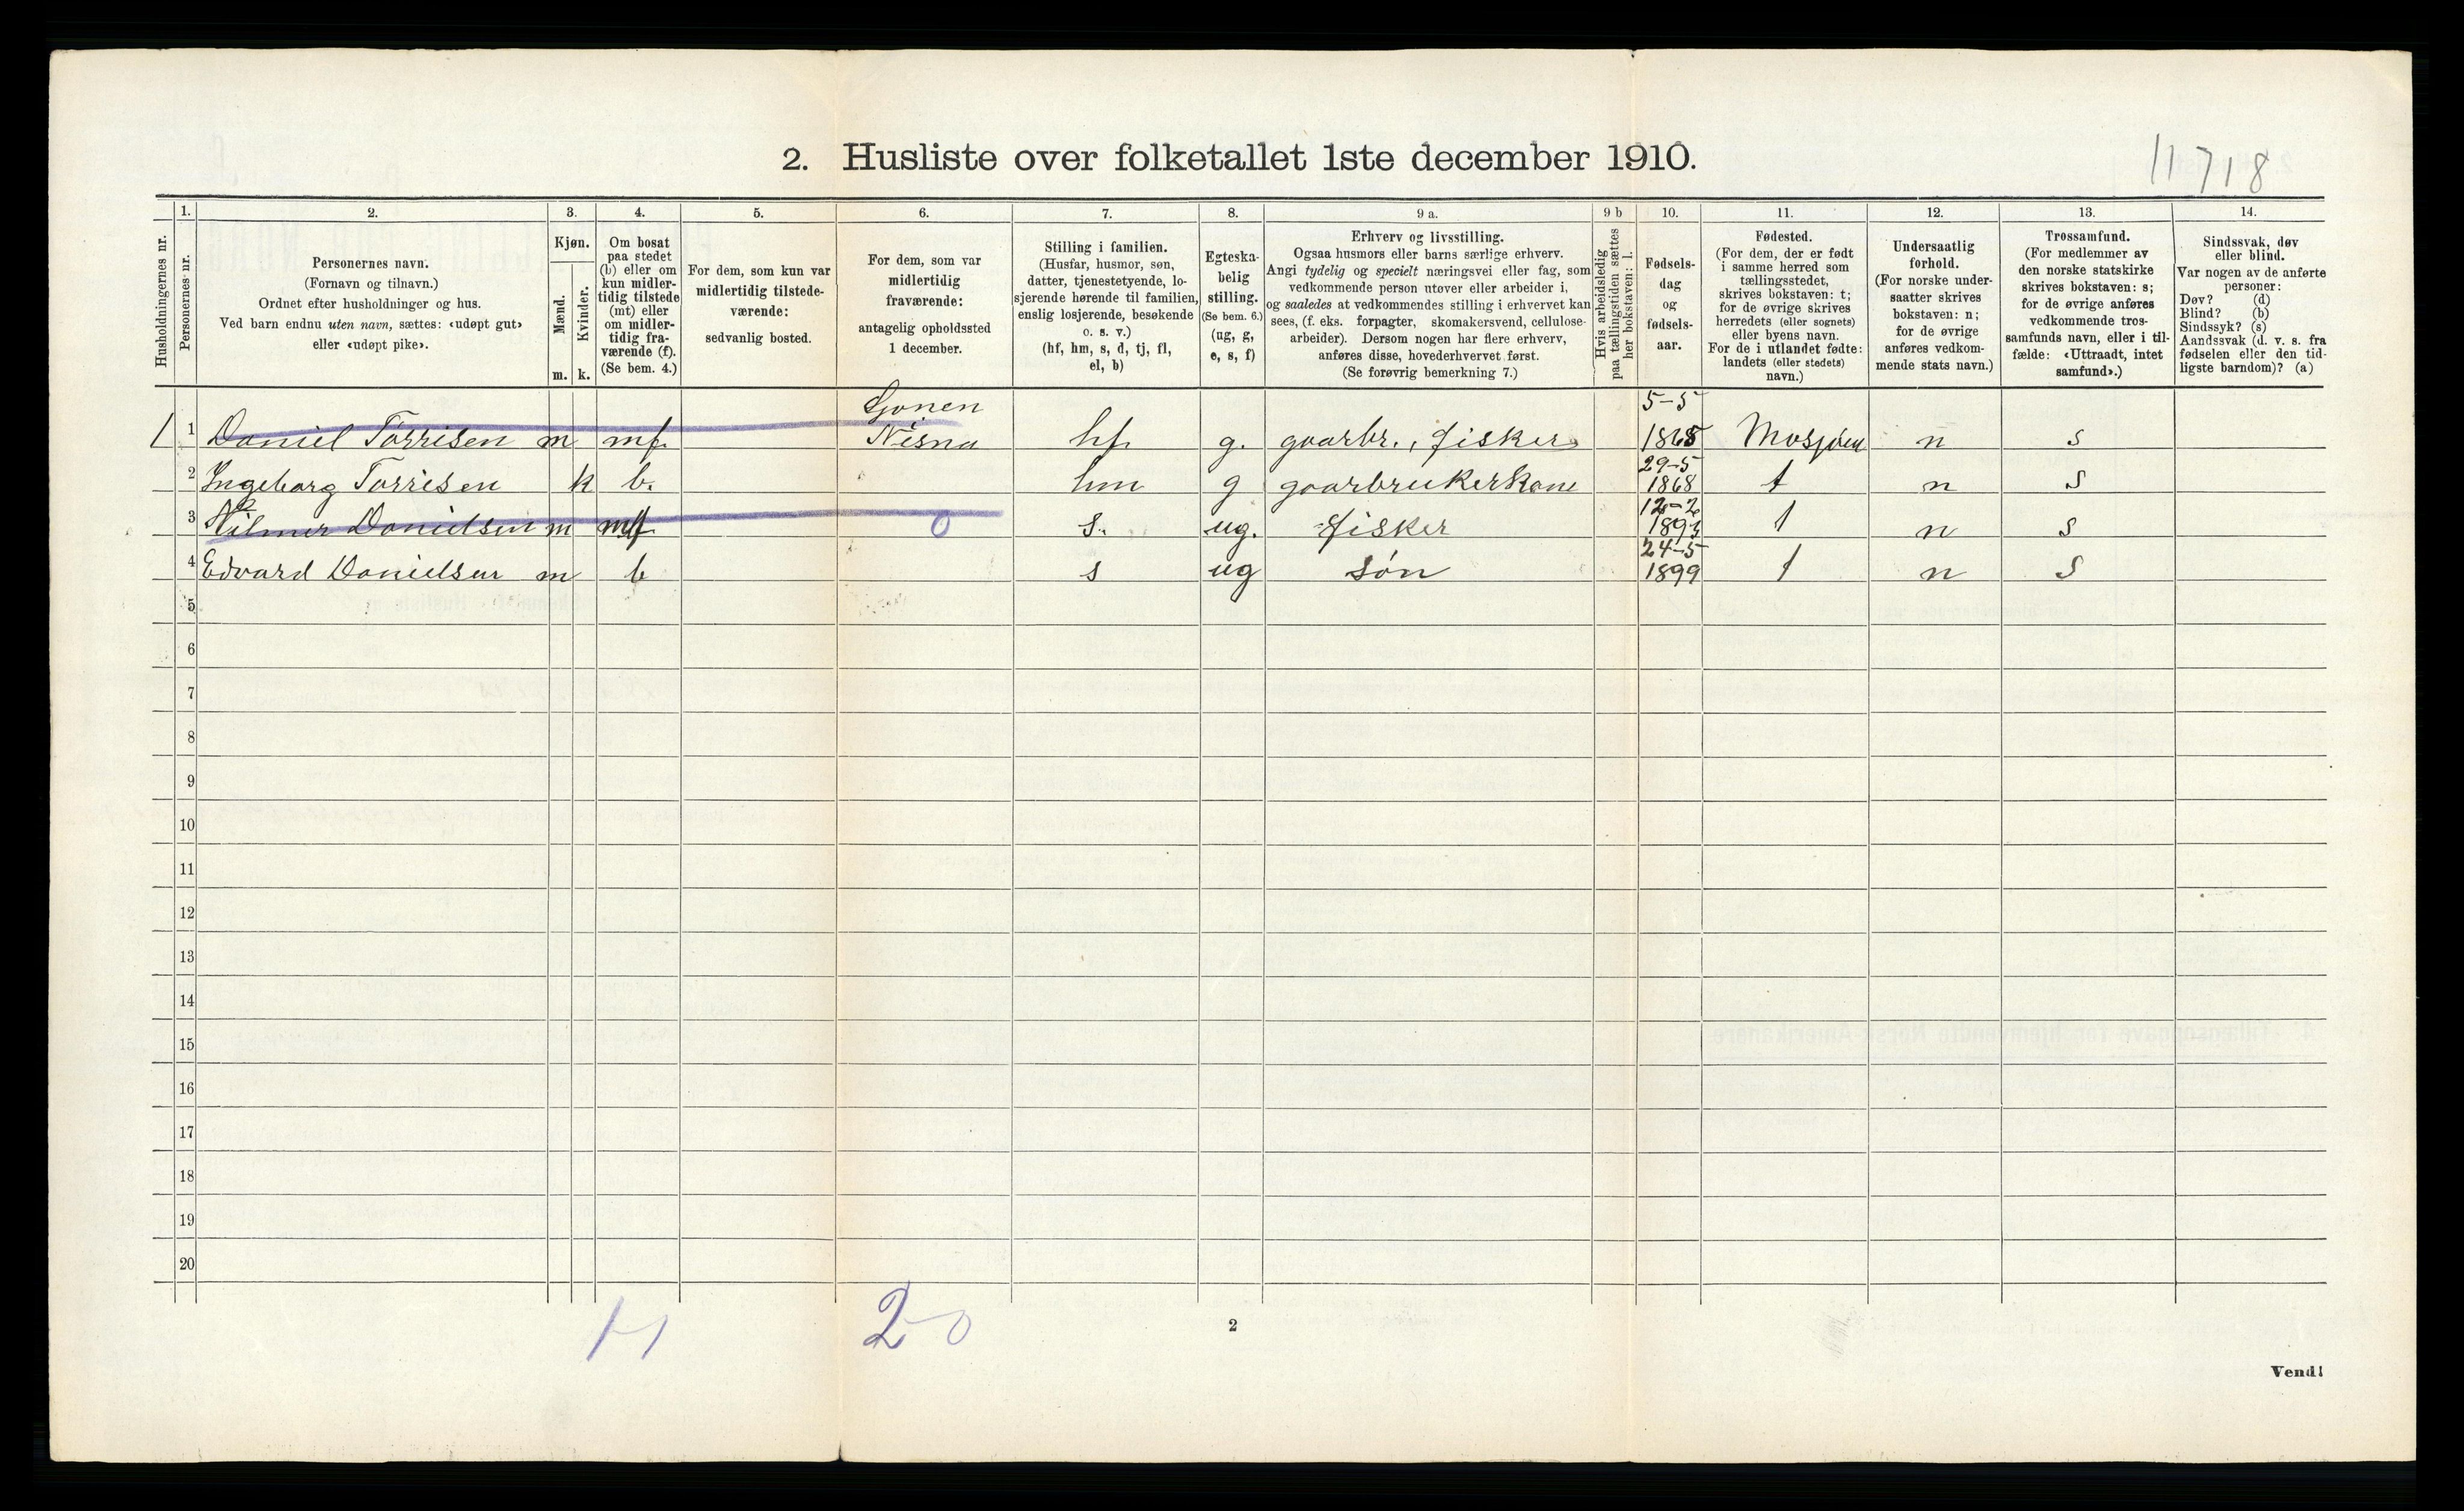 2. Husliste over folketallet 1ste december 1910.
11718
Husholdningernes nr.
1.
Personernes nr.
2.
Personernes navn.
(Fornavn og tilnavn.)
Ordnet efter husholdninger og hus.
Ved barn endnu uten navn, sættes: «udøpt gut»
eller «udøpt pike».
3.
Kjøn.
Mænd.
Kvinder.
m. k.
4.
Om bosat
paa stedet
(b) eller om
kun midler-
tidig tilstede
(mt) eller
om midler-
tidig fra-
værende (f).
(Se bem. 4.)
5.
For dem, som kun var
midlertidig tilstede-
værende:
sedvanlig bosted.
6.
For dem, som var
midlertidig
fraværende:
antagelig opholdssted
1 december.
7.
Stilling i familien.
(Husfar, husmor, søn,
datter, tjenestetyende, lo-
sjerende hørende til familien,
enslig losjerende, besøkende
o. s. v.)
(hf, hm, s, d, tj, fl,
el, b)
8.
Egteska-
belig
stilling.
(Se bem. 6.)
(ug, g,
e, s, f)
9 a.
Erhverv og livsstilling.
Ogsaa husmors eller barns særlige erhverv.
Angi tydelig og specielt næringsvei eller fag, som
vedkommende person utøver eller arbeider i,
og saaledes at vedkommendes stilling i erhvervet kan
sees, (f. eks. forpagter, skomakersvend, cellulose-
arbeider). Dersom nogen har flere erhverv,
anføres disse, hovederhvervet først.
(Se forøvrig bemerkning 7.)
9 b
Hvis arbeidsledig
paa tællingstiden sættes
her bokstaven: l.
10.
Fødsels-
dag
og
fødsels-
aar.
11.
Fødested.
(For dem, der er født
i samme herred som
tællingsstedet,
skrives bokstaven: t;
for de øvrige skrives
herredets (eller sognets)
eller byens navn.
For de i utlandet fødte:
landets (eller stedets)
navn.)
12.
Undersaatlig
forhold.
(For norske under-
saatter skrives
bokstaven: n;
for de øvrige
anføres vedkom-
mende stats navn.)
13.
Trossamfund.
(For medlemmer av
den norske statskirke
skrives bokstaven: s;
for de øvrige anføres
vedkommende tros-
samfunds navn, eller i til-
fælde: «Uttraadt, intet
samfund».)
14.
Sindssvak, døv
eller blind.
Var nogen av de anførte
personer:
Døv? (d)
Blind? (b)
Sindssyk? (s)
Aandssvak (d. v. s. fra
fødselen eller den tid-
ligste barndom)? (a)
Sjonen 5-5
1 1 Daniel Torrisen m mf. Nesna hf. g. gaarbr., fisker 1865 Mosjøen n s
29-5
2 Ingeborg Torrisen k b. hm g gaarbrukerkone 1868 t n s
12-2
3 Hilmer Danielsen m mf 0 s. ug. fisker 1893 t n s
24-5
4 Edvard Danielsen m b s ug søn 1899 t n s
5
6
7
8
9
10
11
12
13
14
15
16
17
18
19
20
1-1 2-0
2
Vend!